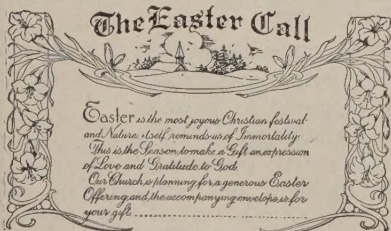 The Easter Call
Easter is the most joyous Christian festival
and Nature itself reminds us of Immortality.
This is the Season to make a Gift an expression
of Love and Gratitude to God.
Our Church is planning for a generous Easter
Offering and the accompanying envelope is for
your gift..................